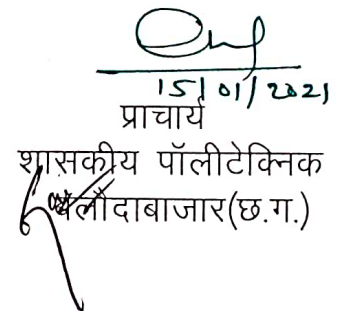 15/01/2021
प्राचार्य
शासकीय पॉलीटेक्निक
बलौदाबाजार(छ.ग.)